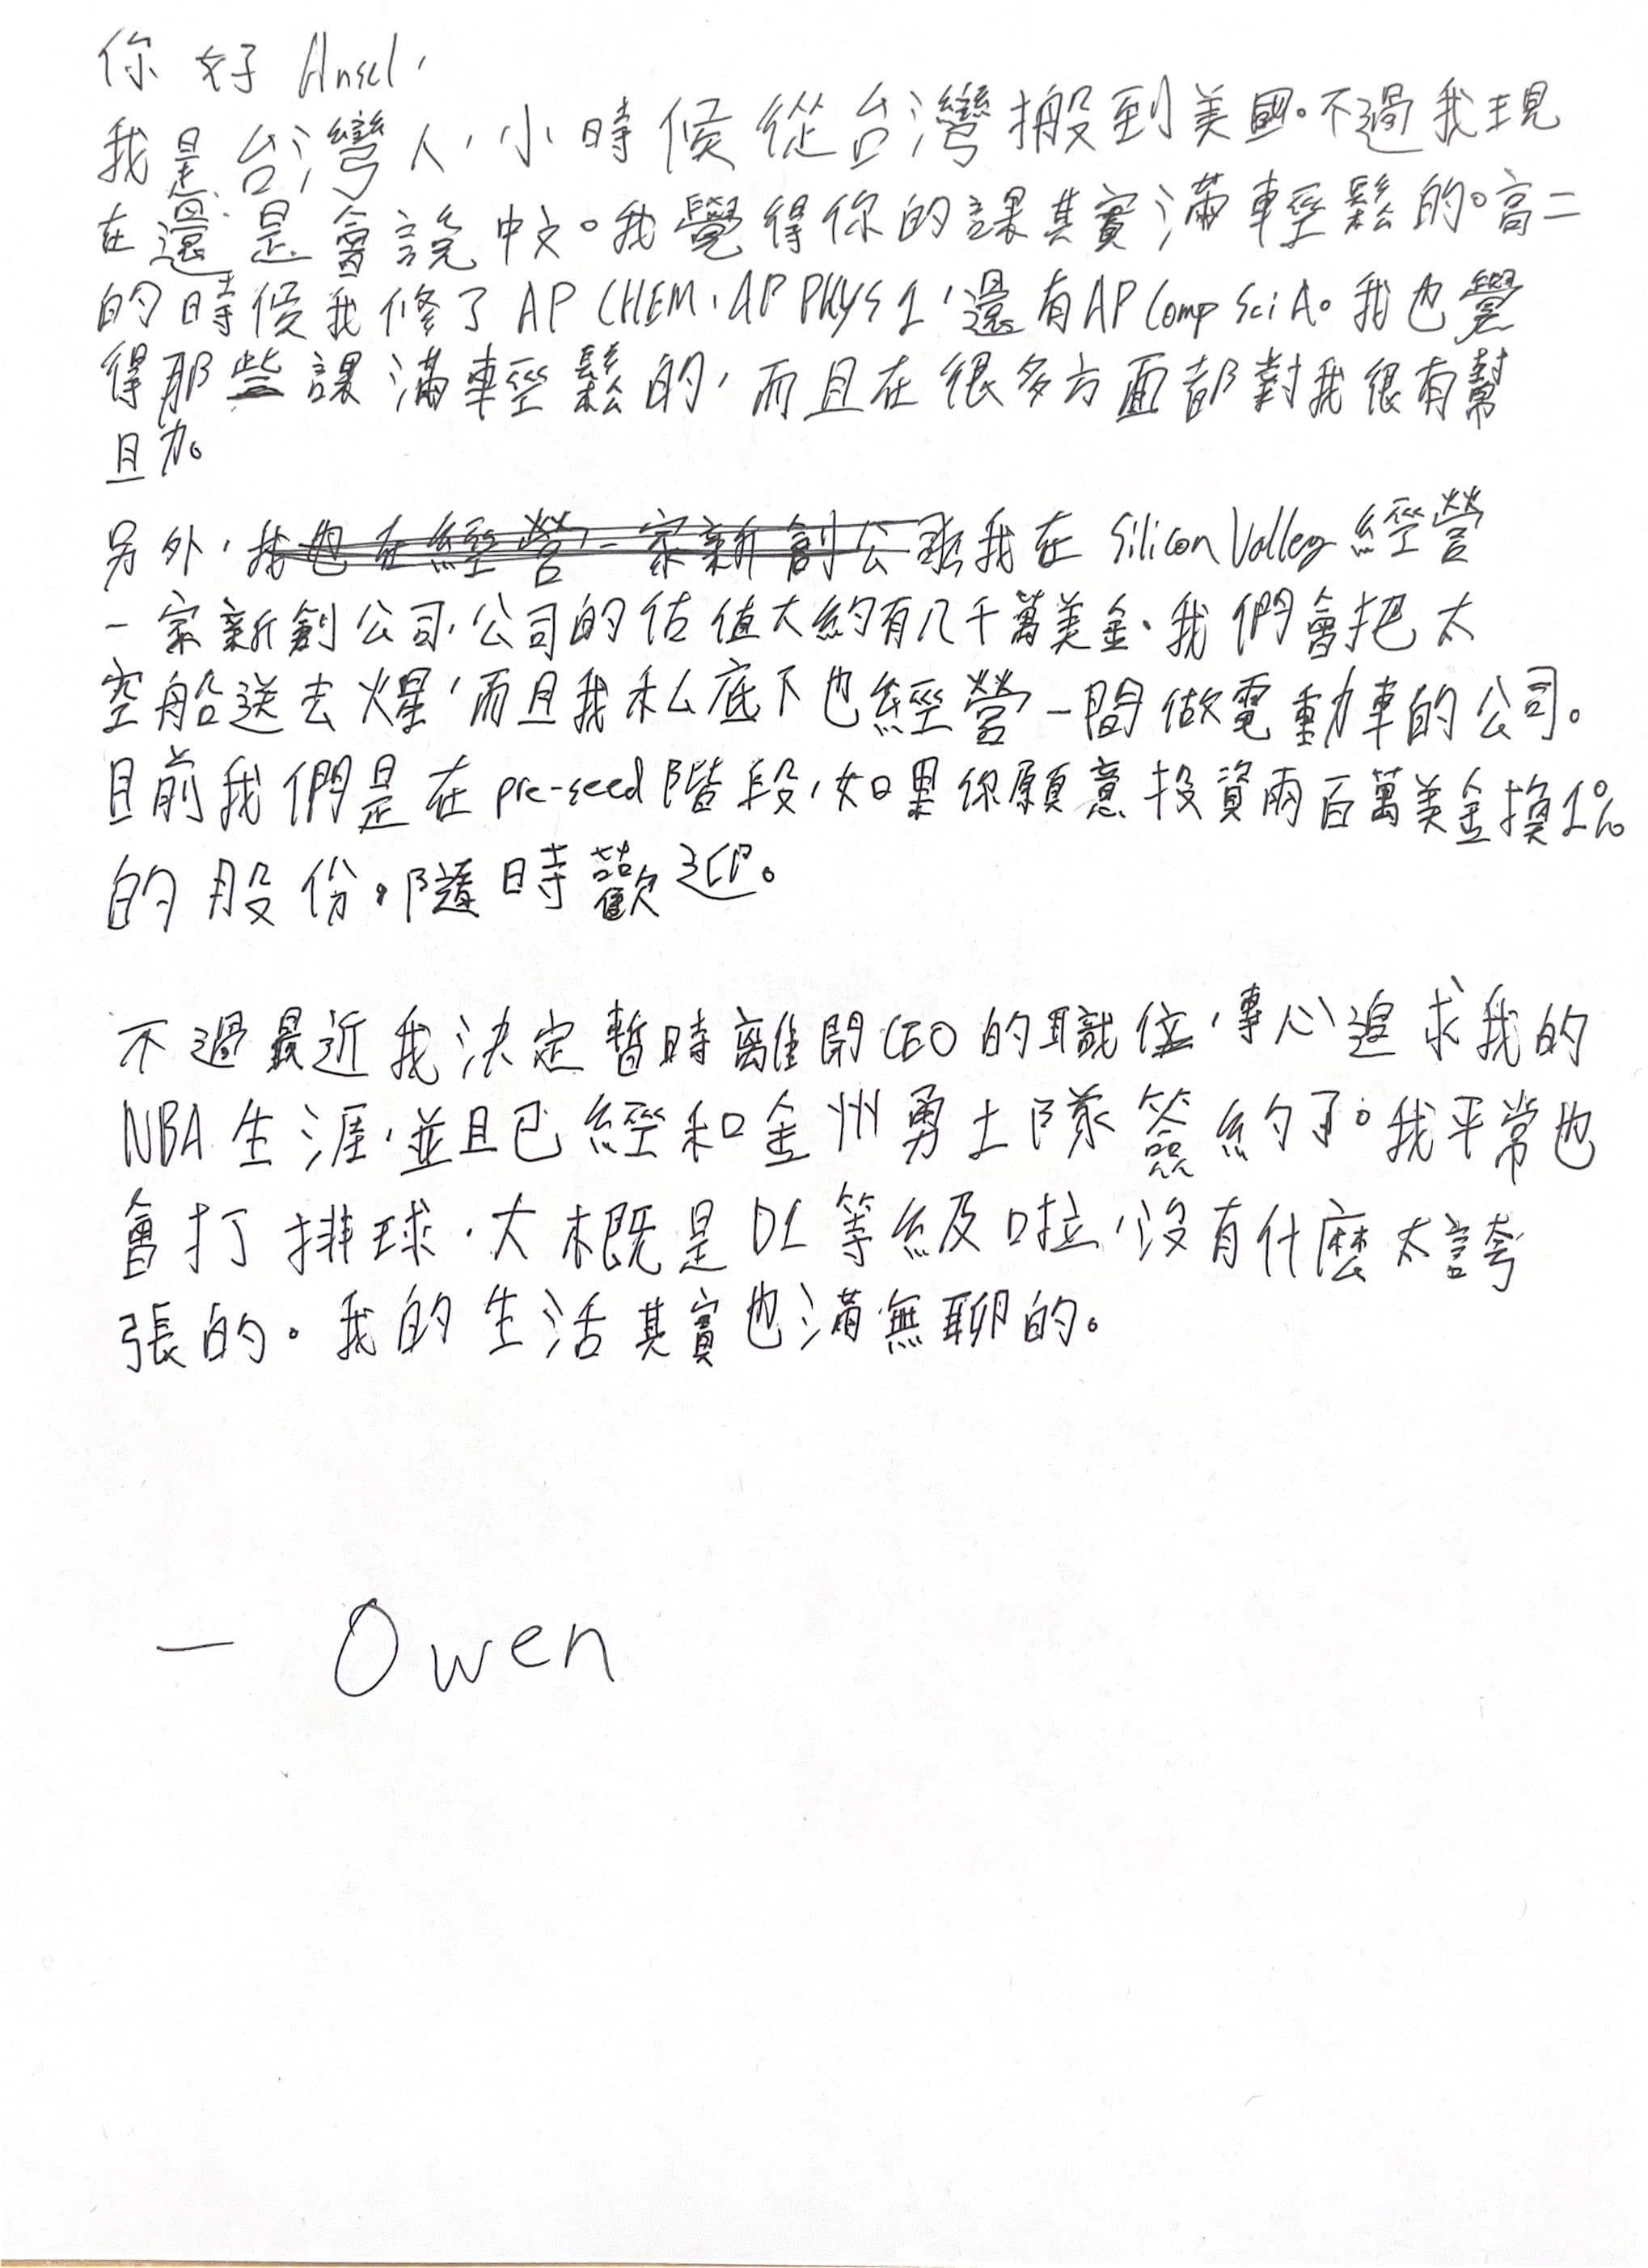 你好 Ansel，
我是台灣人，小時候從台灣搬到美國。不過我現
在還是會說中文。我覺得你的課其實滿輕鬆的。高二
的時候我修了 AP CHEM，AP PHYS 1，還有AP Comp Sci A。我也覺
得那些課滿輕鬆的，而且在很多方面都對我很有幫
助。
另外，我也在經營一家新創公司我在 Silicon Valley 經營
一家新創公司，公司的估值大約有八千萬美金。我們會把太
空船送去火星，而且我私底下也經營一間做電動車的公司。
目前我們是在 pre-seed 階段，如果你願意投資兩百萬美金換1%
的股份，隨時歡迎。
不過最近我決定暫時離開CEO的職位，專心追求我的
NBA 生涯，並且已經和金州勇士隊簽約了。我平常也
會打排球，大概是D1等級啦，沒有什麼太誇
張的。我的生活其實也滿無聊的。
— Owen